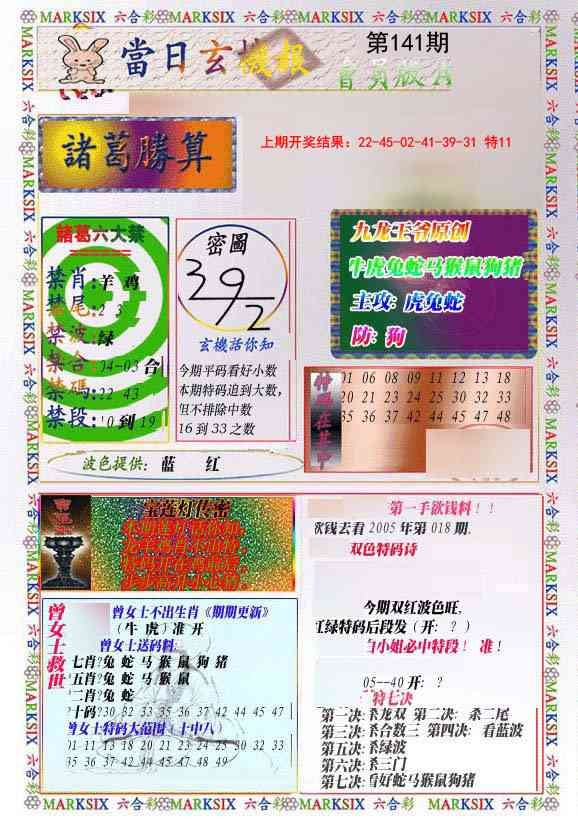 MARKSIX 六合彩 MARKSIX 六合彩 MARKSIX 六合彩 MARKSIX 六合彩
當日玄機報
第141期
會員版A
諸葛勝算
上期开奖结果：22-45-02-41-39-31 特11
諸葛六大禁
禁肖:羊 鸡
禁尾:2 3
禁波:绿
禁合:04-03 合
禁碼:22 43
禁段: 到19
密圖
392
玄機話你知
今期平码看好小数
本期特码追到大数,
但不排除中数
16 到 33 之数
九龙王爷原创
牛虎兔蛇马猴鼠狗猪
主攻: 虎兔蛇
防: 狗
特碼在其中
01 06 08 09 11 12 13 18
20 21 23 24 25 30 32 33
35 36 37 42 44 45 47 48
波色提供: 蓝 红
宝连灯传密
第一手欲钱料！！
欲钱去看 2005 年第 018 期.
双色特码诗
今期双红波色旺,
红绿特码后段发（开: ？）
白小姐必中特段！ 准！
05--40 开: ？
特七决
第一决:杀龙双 第二决: 杀二尾
第三决:杀合数三 第四决: 看蓝波
第五决:杀绿波
第六决:杀三门
第七决:看好蛇马猴鼠狗猪
曾女士救世
曾女士不出生肖《期期更新》
（牛 虎）准 开
曾女士送码料
七肖?兔 蛇 马 猴 鼠 狗 猪
五肖?兔 蛇 马 猴 鼠
二肖?兔 蛇
十码?30 32 33 35 36 37 42 44 45 47
曾女士特码大范围 十中八
01 11 13 18 20 21 23 24 25 30 32 33
35 36 37 42 44 45 47 48 49
MARKSIX 六合彩 MARKSIX 六合彩 MARKSIX 六合彩 MARKSIX 六合彩